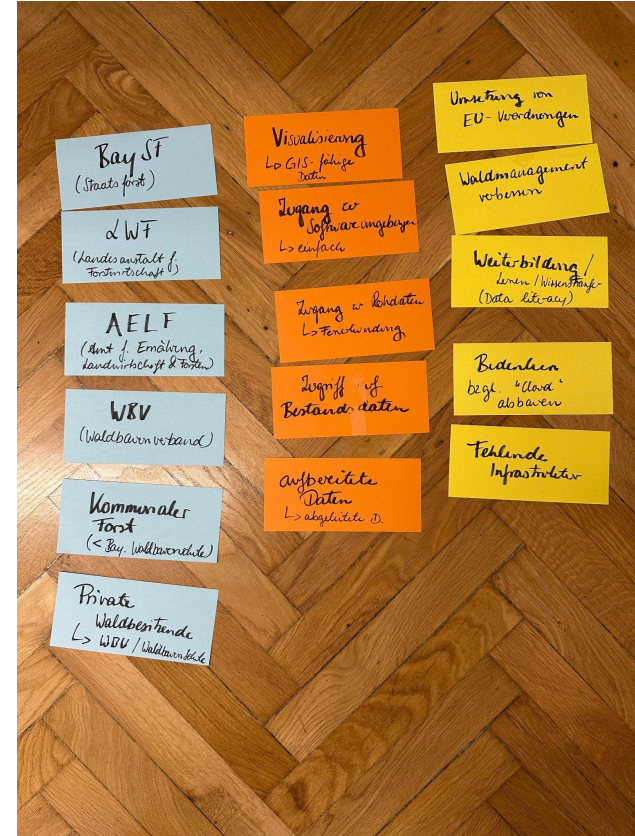 Bay SF
(Staatsforst)
LWF
(Landesanstalt f.
Forstwirtschaft)
AELF
(Amt f. Ernährung,
Landwirtschaft & Forsten)
WBV
(Waldbauernverband)
Kommunaler
Forst
(< Bay. Waldbauernschule)
Private
Waldbesitzende
↳ WBV / Waldbauernschule
Visualisierung
↳ GIS-fähige
Daten
Zugang zu
Softwareumgebungen
↳ einfach
Zugang zu Rohdaten
↳ Fernerkundung
Zugriff auf
Bestandsdaten
aufbereitete
Daten
↳ abgeleitete D.
Umsetzung von
EU-Verordnungen
Waldmanagement
verbessern
Weiterbildung /
Lernen / Wissenstransfer
(Data literacy)
Bedenken
bzgl. "Cloud"
abbauen
Fehlende
Infrastruktur